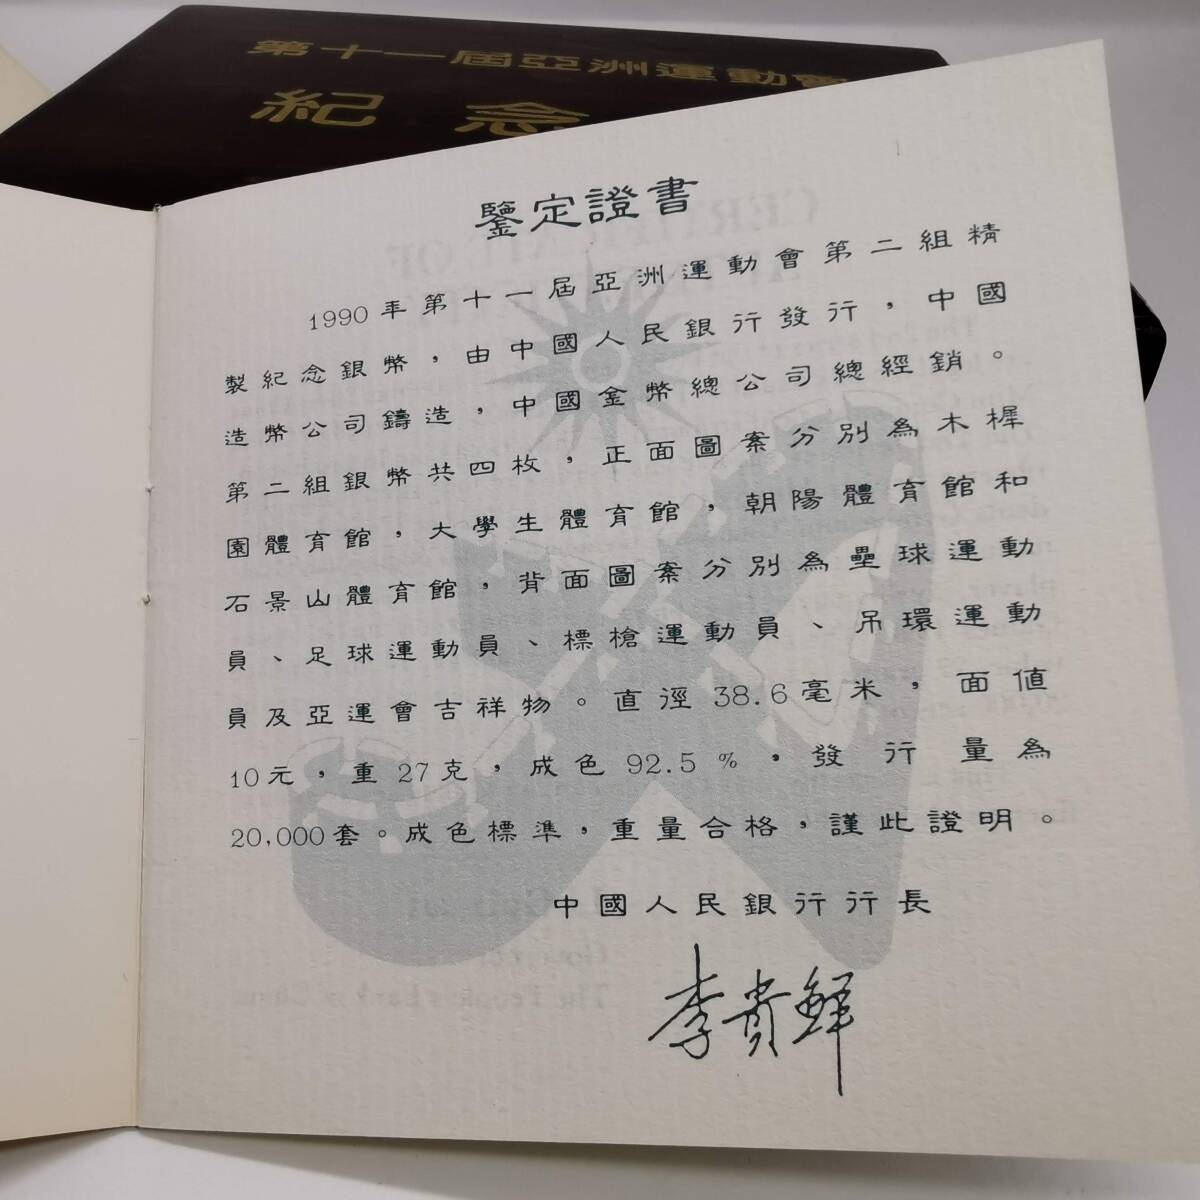 第十一屆亞洲運動會
紀念
鑒定證書
1990年第十一屆亞洲運動會第二組精
製紀念銀幣，由中國人民銀行發行，中國
造幣公司鑄造，中國金幣總公司總經銷。
第二組銀幣共四枚，正面圖案分別為木樨
園體育館，大學生體育館，朝陽體育館和
石景山體育館，背面圖案分別為壘球運動
員、足球運動員、標槍運動員、吊環運動
員及亞運會吉祥物。直徑38.6毫米，面值
10元，重27克，成色92.5%，發行量為
20,000套。成色標準，重量合格，謹此證明。
中國人民銀行行長
李貴鮮